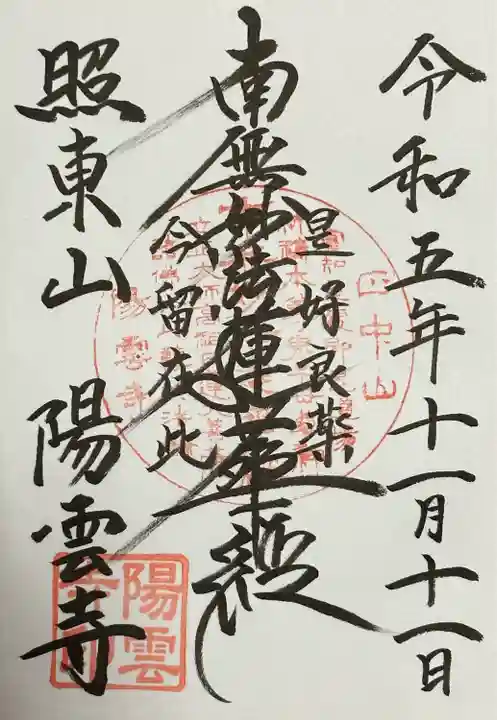 令和五年十一月十一日
是好良薬
南無妙法蓮華経
今留在此
照東山 陽雲寺
正中山
陽雲寺
陽雲寺印